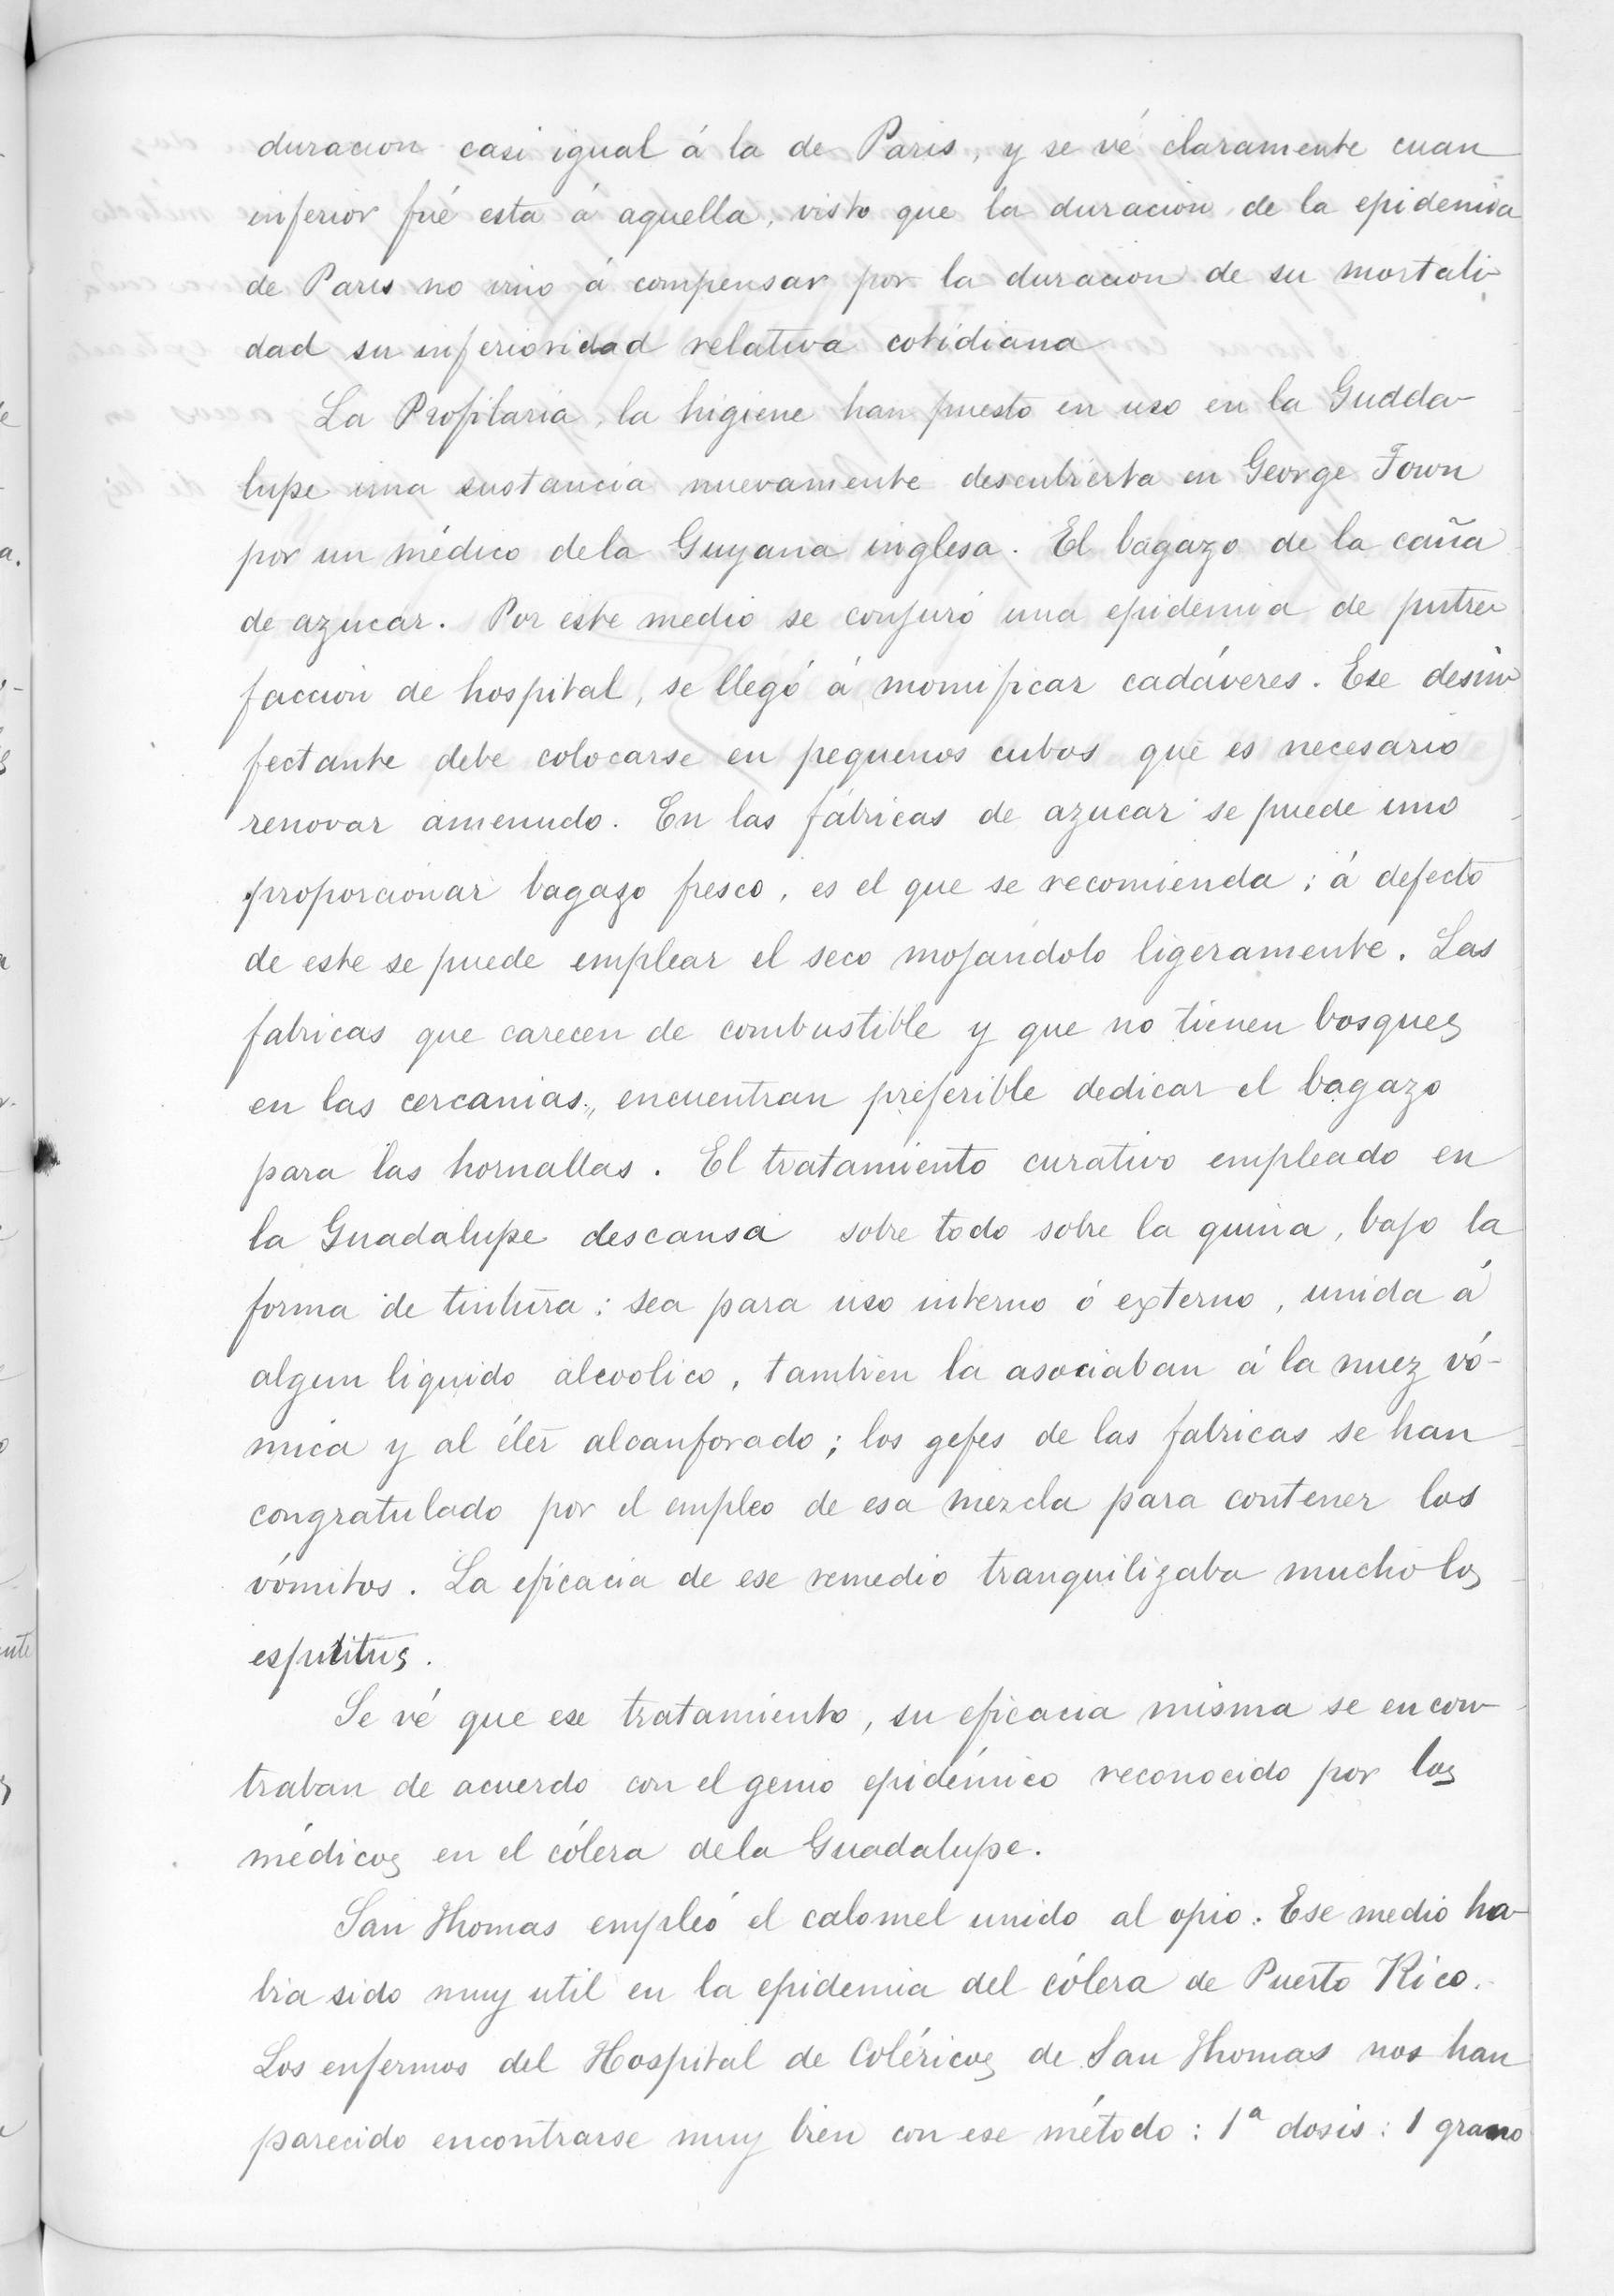 duracion casi igual á la de Paris, y se vé claramente cuan
inferior fué esta á aquella, visto que la duracion de la epidemia
de Paris no vino á compensar por la duracion de su mortali-
dad su inferioridad relativa cotidiana
La Profilaxia, la higiene han puesto en uso en la Gudda-
lupe una sustancia nuevamente descubierta en George Town
por un médico dela Guyana inglesa. El bagazo de la caña
de azucar. Por este medio se conjuró una epidemia de putre-
faccion de hospital, se llegó á momificar cadáveres. Ese desin-
fectante debe colocarse en pequenos cubos que es necesario
renovar amenudo. En las fábricas de azucar se puede uno
proporcionar bagazo fresco, es el que se recomienda; á defecto
de este se puede emplear el seco mojandolo ligeramente. Las
fabricas que carecen de combustible y que no tienen bosques
en las cercanias, encuentran preferible dedicar el bagazo
para las hornallas. El tratamiento curativo empleado en
la Guadalupe descansa sobre todo sobre la quina, bajo la
forma de tintura: sea para uso interno ó externo, unida á
algun liquido alcoolico, tambien la asociaban á la nuez vó-
mica y al éter alcanforado; los gefes de las fabricas se han
congratulado por el empleo de esa mezcla para contener los
vómitos. La eficacia de ese remedio tranquilizaba mucho los
espiritus.
Se vé que ese tratamiento, su eficacia misma se encon-
traban de acuerdo con el genio epidémico reconocido por los
médicos en el cólera dela Guadalupe.
San Thomas empleó el calomel unido al opio. Ese medio ha-
bia sido muy util en la epidemia del cólera de Puerto Rico.
Los enfermos del Hospital de Coléricos de San Thomas nos han
parecido encontrarse muy bien con ese método: 1ª dosis: 1 grano